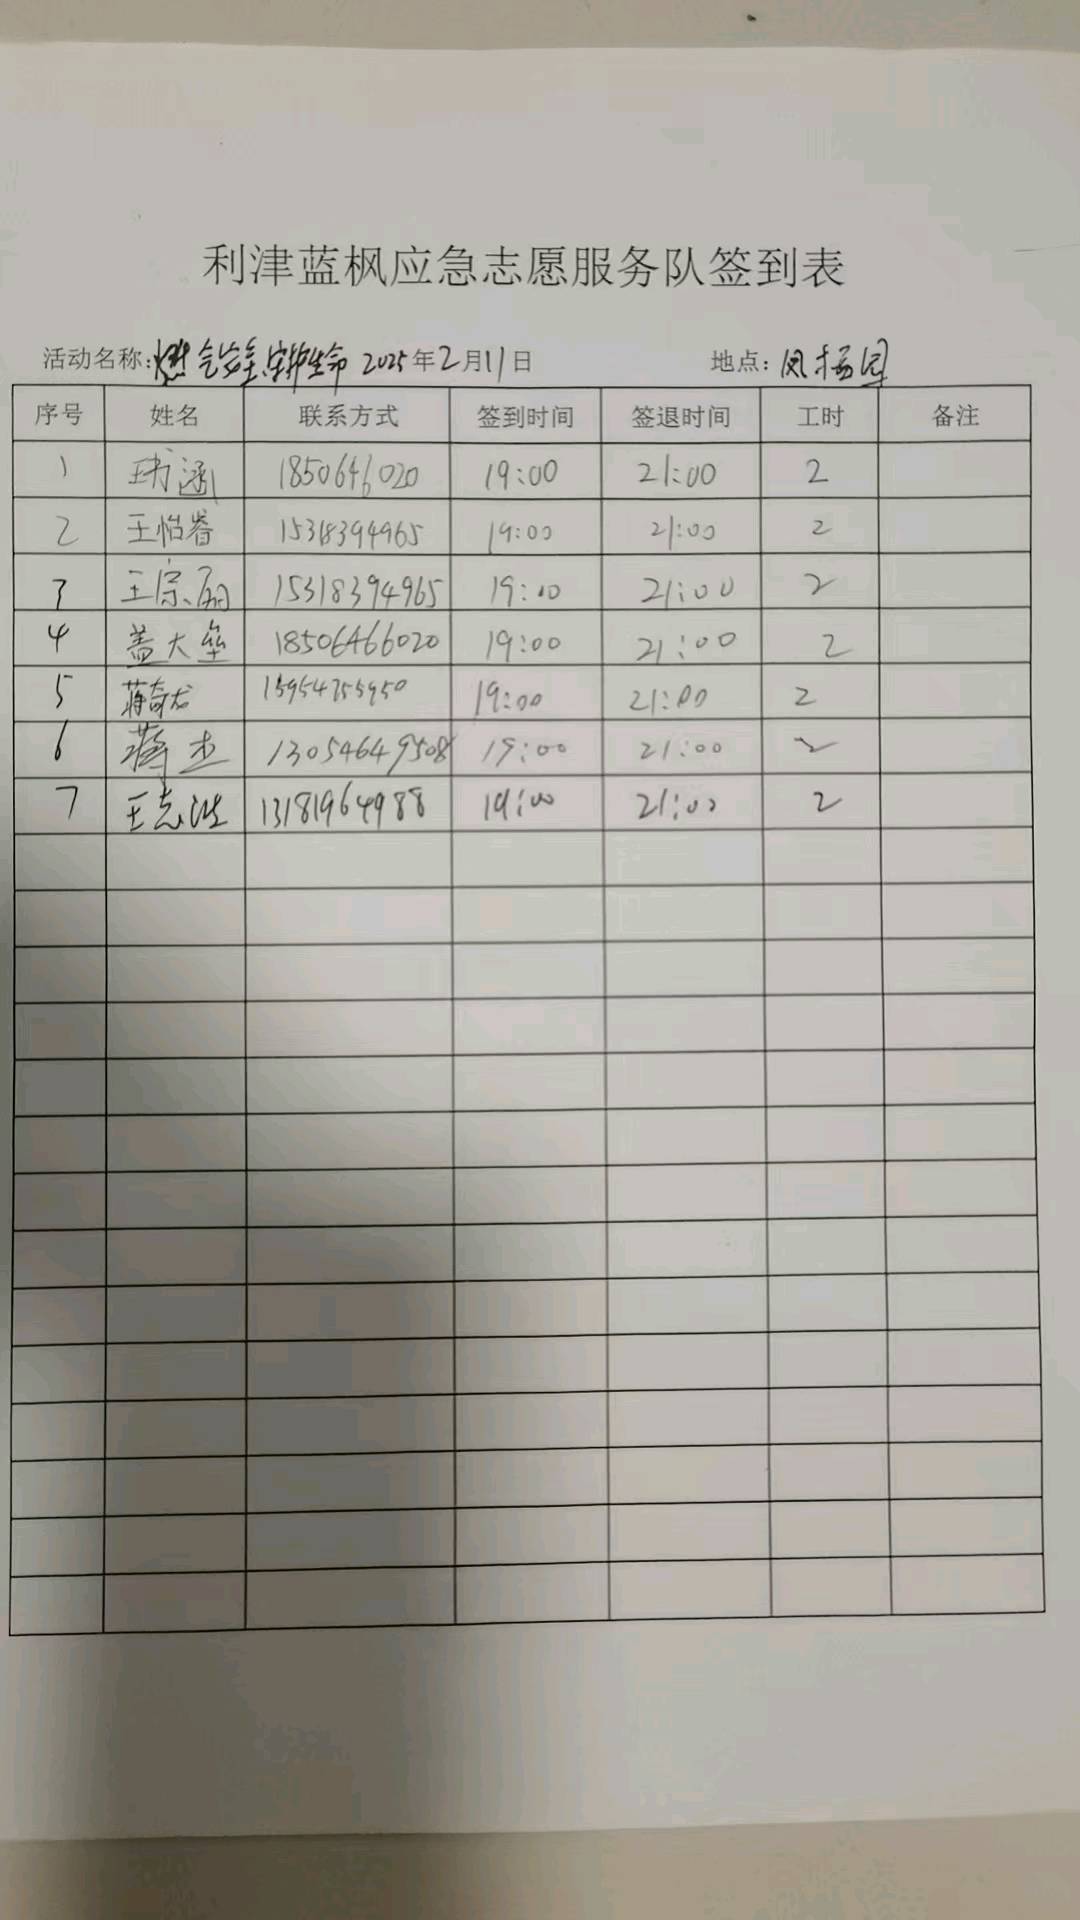 利津蓝枫应急志愿服务队签到表
活动名称:燃气安全,守护生命 2025年2月11日 地点:凤杨园
序号 姓名 联系方式 签到时间 签退时间 工时 备注
1 王书涵 1850646020 19:00 21:00 2
2 王怡睿 15318394965 19:00 21:00 2
3 王宗 15318394965 19:00 21:00 2
4 盖大垒 18506466020 19:00 21:00 2
5 蒋奇龙 19:00 21:00 2
6 蒋杰 13054649508 19:00 21:00 2
7 王志浩 13181964988 19:00 21:00 2